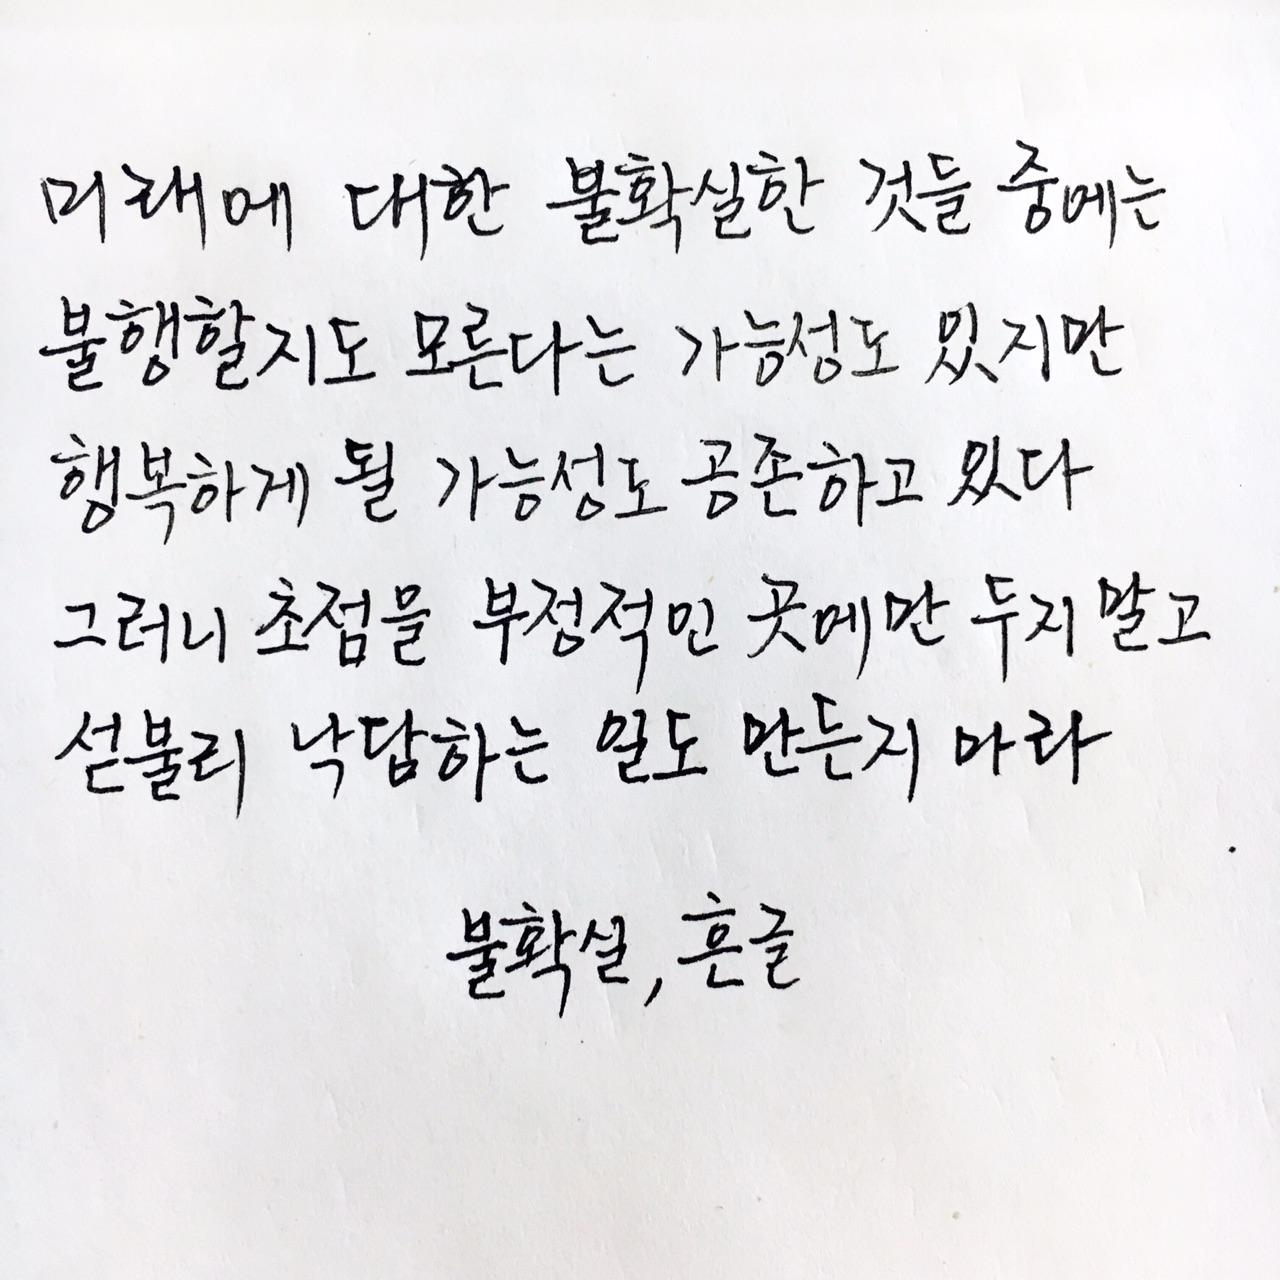 미래에 대한 불확실한 것들 중에는
불행할지도 모른다는 가능성도 있지만
행복하게 될 가능성도 공존하고 있다
그러니 초점을 부정적인 곳에만 두지 말고
섣불리 낙담하는 일도 만든지 마라
불확실, 흔글